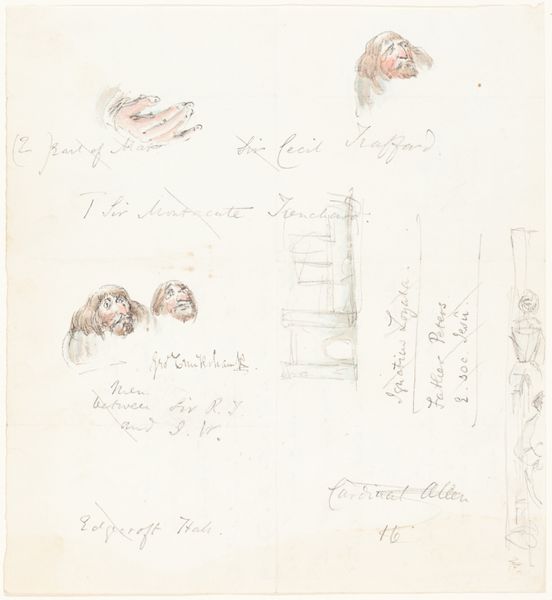 (2 Earl of Mar
Sir Cecil Trafford.
T Sir Montacute Trenchard.
Ignatius Loyola.
Father Peters
2 soc. Jesu.
Geo Cruikshank.
Men
between Sir R. T.
and J. W.
Cardinal Allen
16
Edgecroft Hall.